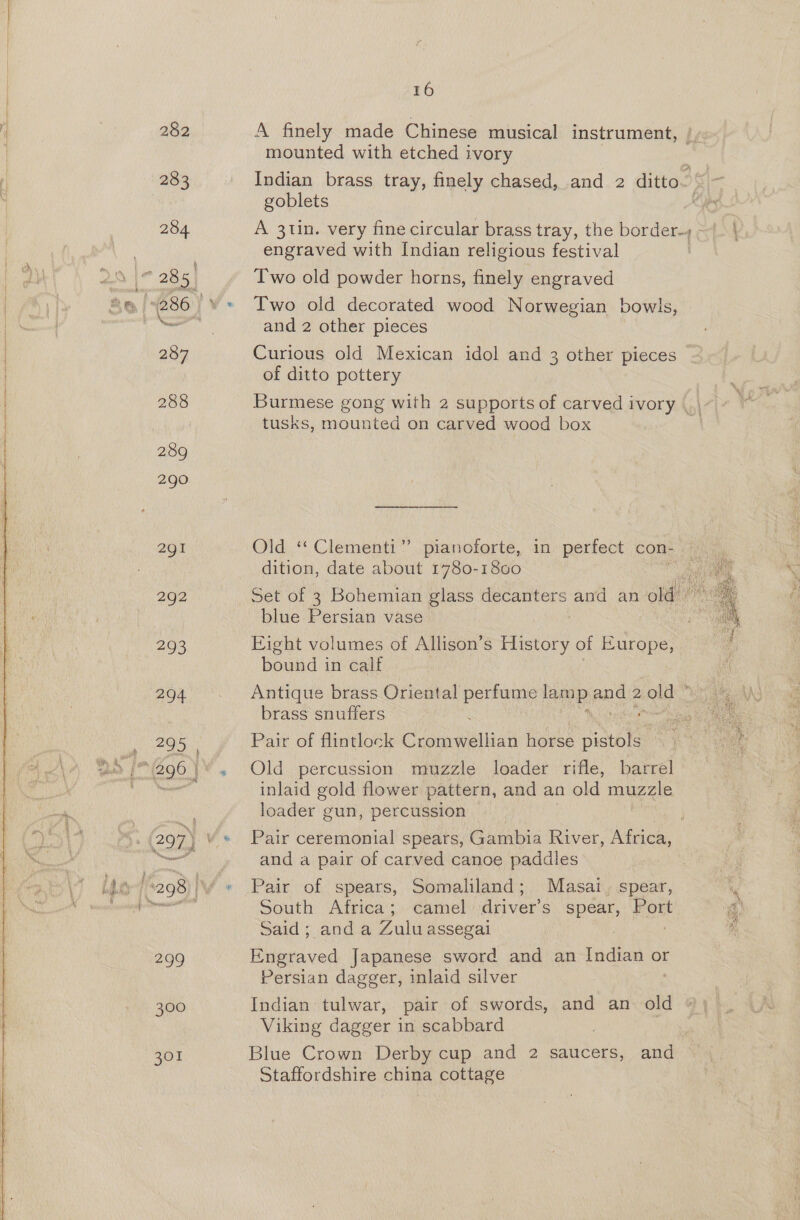 16
282 A finely made Chinese musical instrument,
mounted with etched ivory
283 Indian brass tray, finely chased, and 2 ditto
goblets
284 A 31in. very fine circular brass tray, the border
engraved with Indian religious festival
285 Two old powder horns, finely engraved
286 Two old decorated wood Norwegian bowls,
and 2 other pieces
287 Curious old Mexican idol and 3 other pieces
of ditto pottery
288 Burmese gong with 2 supports of carved ivory
tusks, mounted on carved wood box
289
290
291 Old “Clementi” pianoforte, in perfect con-
dition, date about 1780-1800
292 Set of 3 Bohemian glass decanters and an old
blue Persian vase
293 Eight volumes of Allison's History of Europe,
bound in calf
294 Antique brass Oriental perfume lamp and 2 old
brass snuffers
295 Pair of flintlock Cromwellian horse pistols
296 Old percussion muzzle loader rifle, barrel
inlaid gold flower pattern, and an old muzzle
loader gun, percussion
297 Pair ceremonial spears, Gambia River, Africa,
and a pair of carved canoe paddles
298 Pair of spears, Somaliland; Masai spear,
South Africa; camel driver's spear, Port
Said; and a Zulu assegai
299 Engraved Japanese sword and an Indian or
Persian dagger, inlaid silver
300 Indian tulwar, pair of swords, and an old
Viking dagger in scabbard
301 Blue Crown Derby cup and 2 saucers, and
Staffordshire china cottage